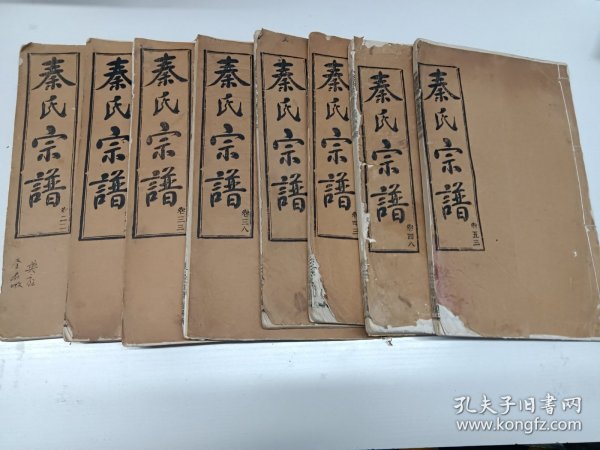 秦氏宗譜
卷二二
秦氏宗譜
秦氏宗譜
卷三三
秦氏宗譜
卷三八
秦氏宗譜
秦氏宗譜
卷四三
秦氏宗譜
卷四八
秦氏宗譜
卷五三
孔夫子旧书网
www.kongfz.com